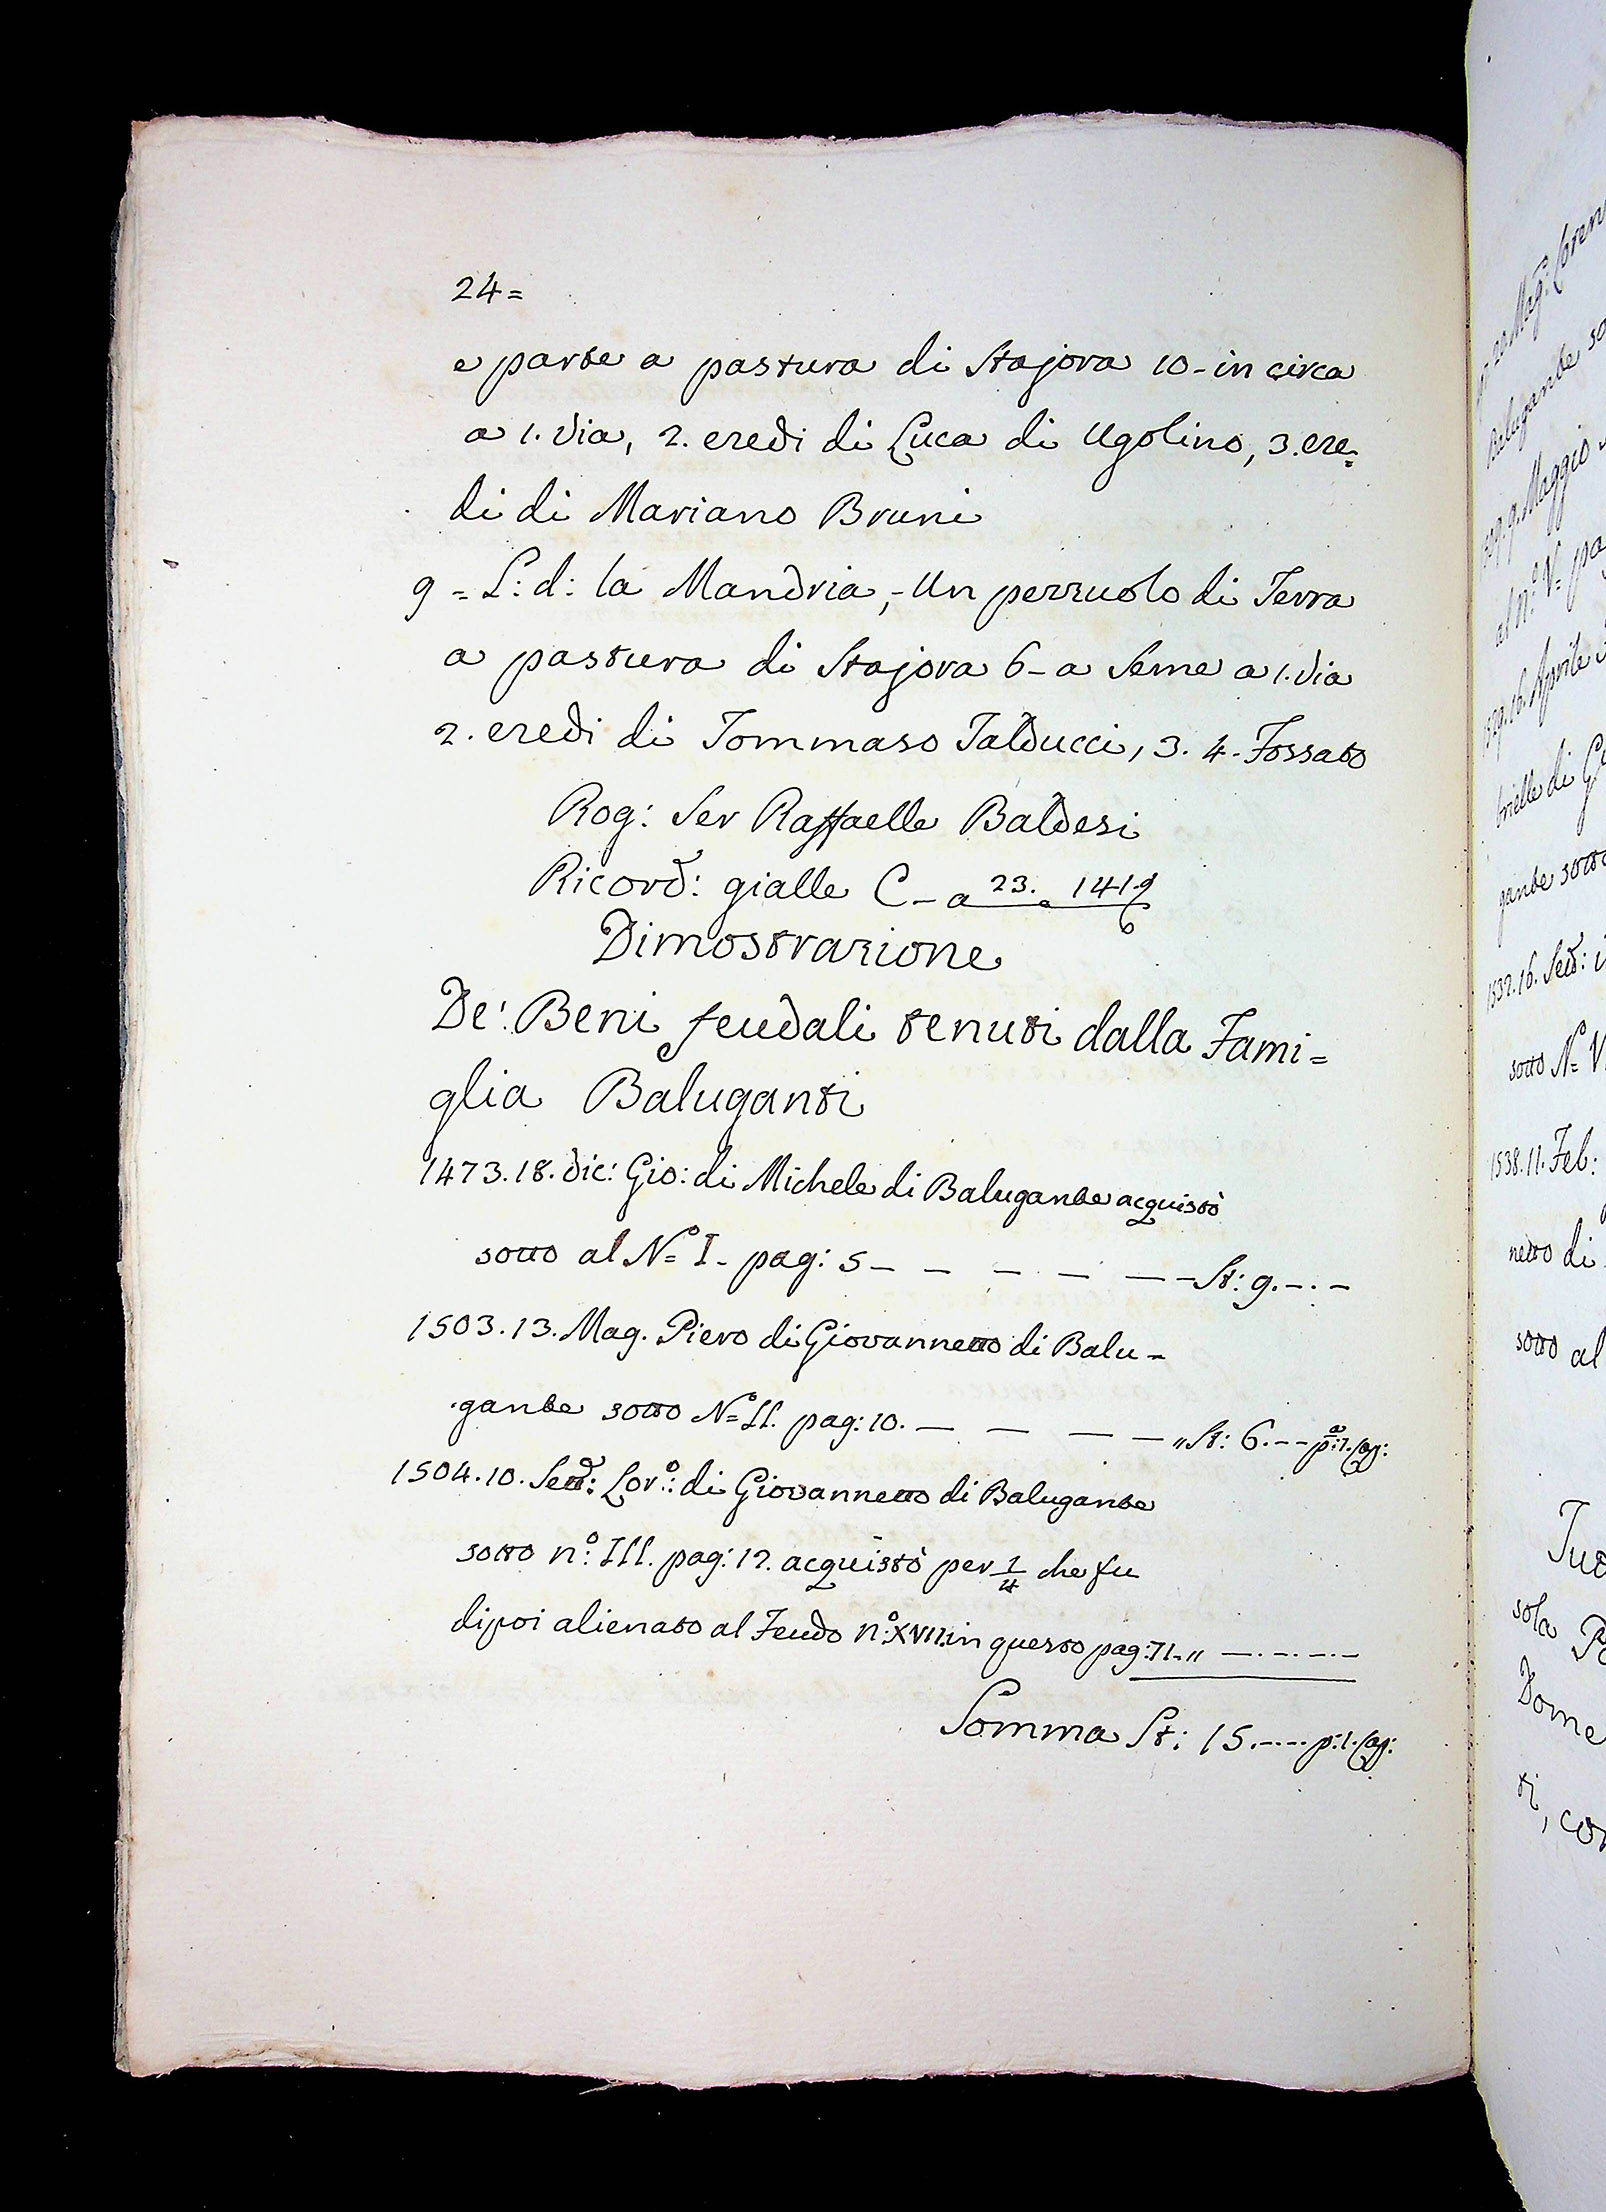 24=
e parte a pastura di Stajora 10-in circa
a 1. Via, 2. eredi di Luca di Ugolino, 3. ere=
di di Mariano Bruni
9 = L: d: la Mandria, - Un pezzuolo di Terra
a pastura di Stajora 6- a Seme a 1. Via
2. eredi di Tommaso Talducci, 3. 4. Fossato
Rog: Ser Raffaelle Baldesi
Ricord: gialle C- a 23.
Dimostrazione
De': Beni feudali tenuti dalla Fami=
glia Baluganti
1473. 18. dic: Gio: di Michele di Balugante acquistò
sotto al No I. pag: 5 - - - - - - St: 9. - . -
1503. 13. Mag. Piero di Giovannetto di Balu-
gante sotto No II. pag: 10. - - - - " St: 6. - -
1504. 10. Sett: Lor.o: di Giovannetto di Balugante
sotto n.o: III. pag: 12. acquistò per 1/4 che fu
dipoi alienato al Feudo n.o: XVII: in questo pag: 71. " - . - . - . -
Somma St: 15. - . - . .
1509. 9. Maggio
1529. 16. Aprile
brielle di
gante sotto
1532. 16. Sett:
sotto No
1538. 11. Feb:
netto di
sotto al
sola